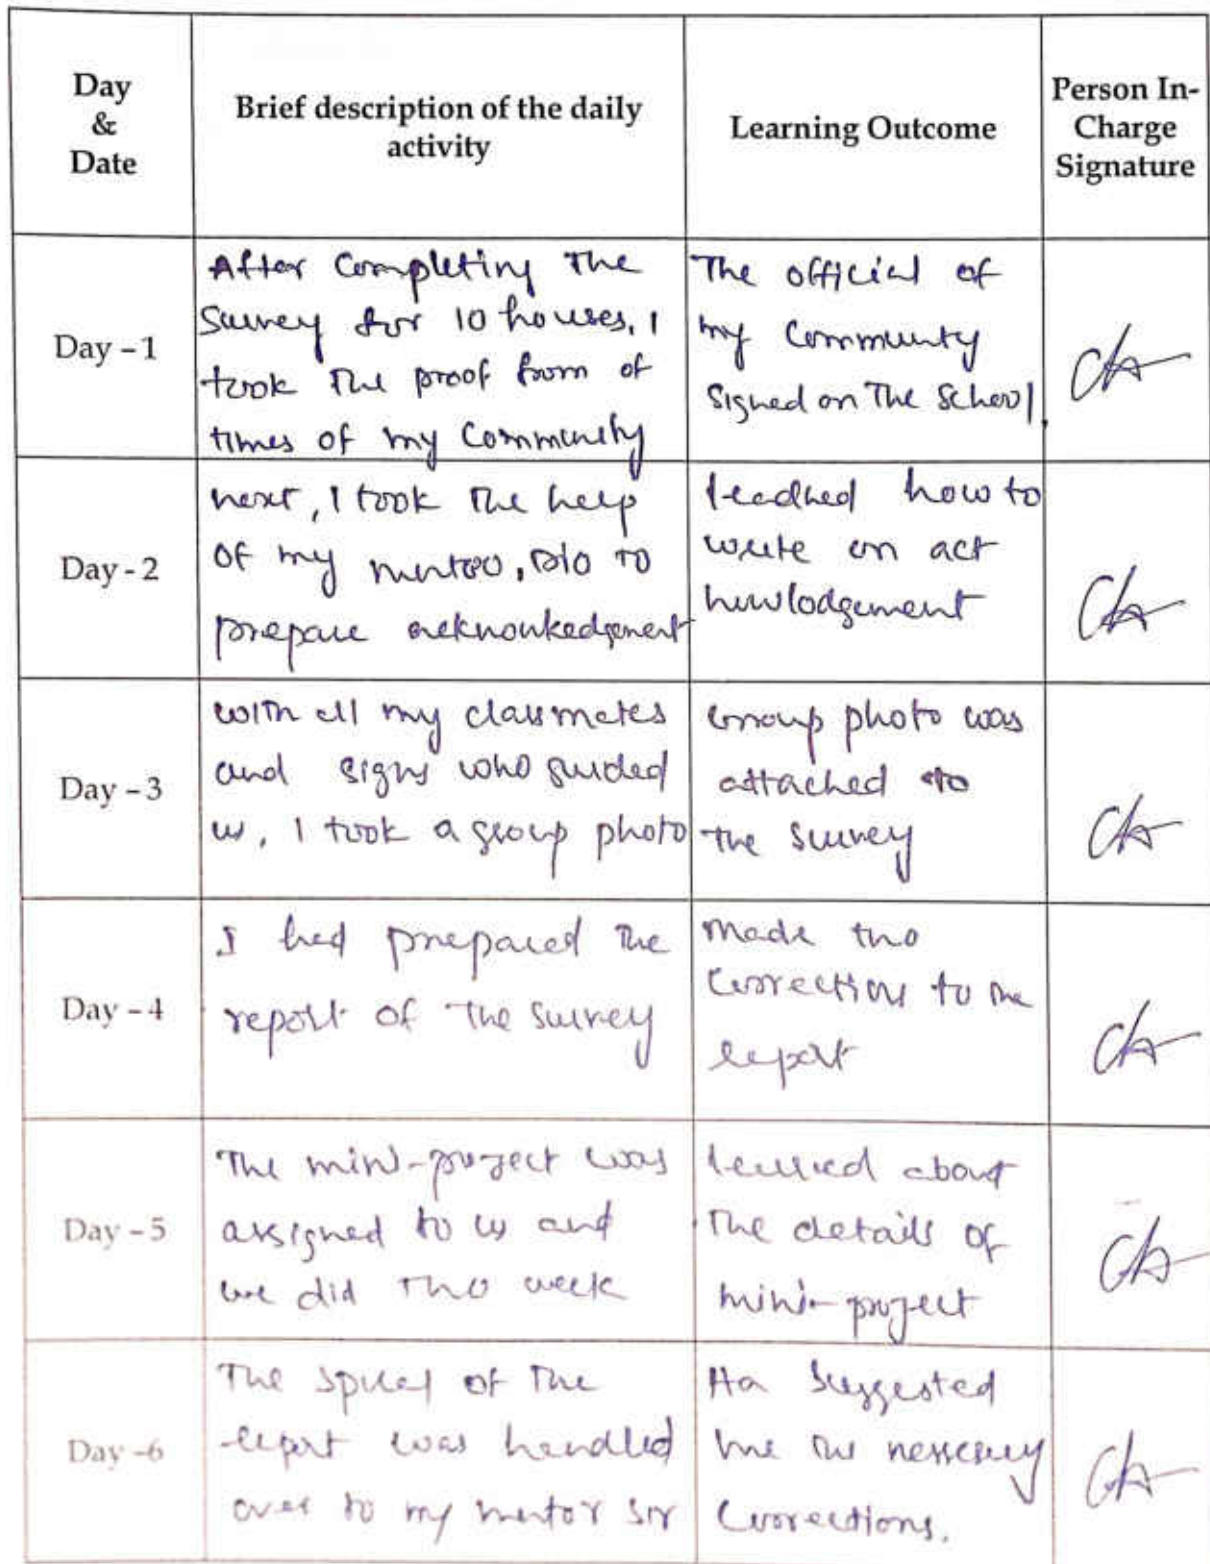 Day
&
Date
Brief description of the daily
activity
Learning Outcome
Person In-
Charge
Signature
Day - 1
After Completing The
Survey for 10 houses, I
took The proof from of
times of my Community
The official of
my Community
Signed on The School.
Day - 2
next, I took The help
of my to
prepare
how to
write an act
howlodgement
Day - 3
with all my classmates
and signs who guided
us, I took a group photo
Group photo was
attached to
The Survey
Day - 4
I had prepared The
report of The Survey
Made two
Corrections to the
report
Day - 5
The mini-project was
assigned to us and
we did week
learned about
The details of
mini-project
Day - 6
The of The
report was handled
over to my mentor sir
suggested
me
Corrections.